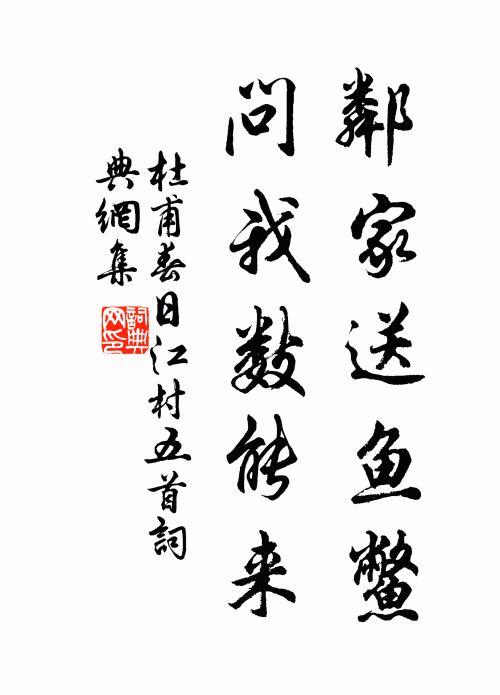 鄰家送鱼鱉
问我數能来
杜甫春日江村五首詞
典網集
詞典网印